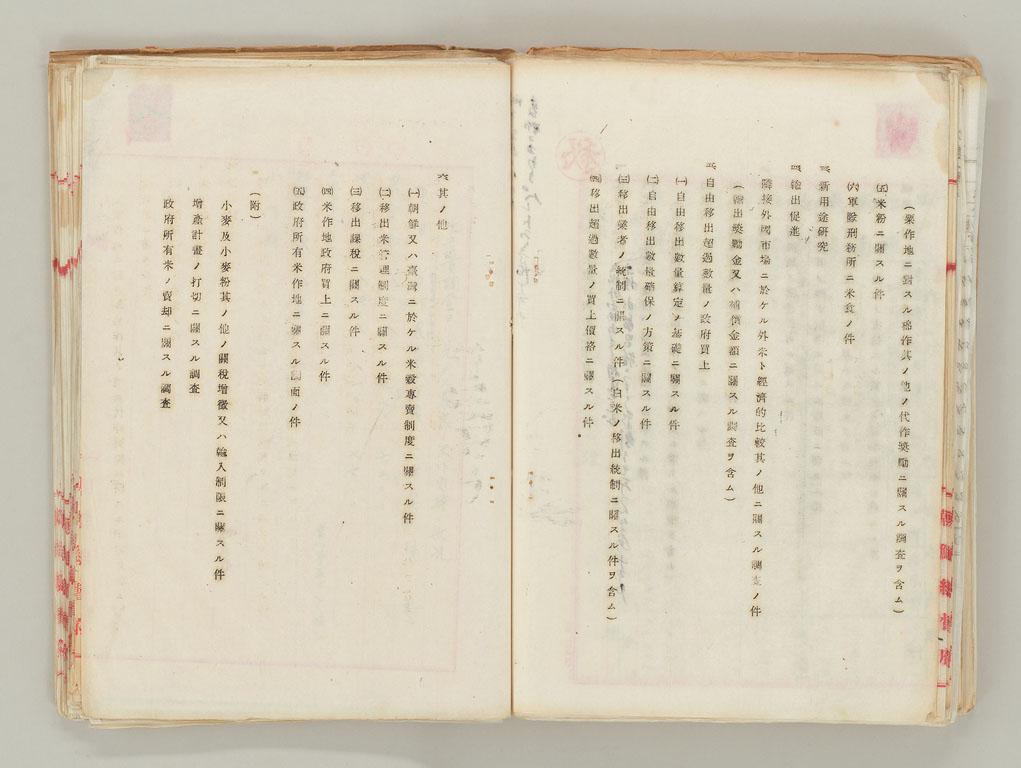 (粟作地ニ對スル稗作其ノ他ノ代作奬勵ニ關スル調査ヲ含ム)
(五)米粉ニ關スル件
(六)軍隊刑務所ニ米食ノ件
三、新用途研究
四、輸出促進
隣接外國市場ニ於ケル外米ト經濟的比較其ノ他ニ關スル調査ノ件
(輸出奬勵金又ハ補償金額ニ關スル調査ヲ含ム)
五、自由移出超過數量ノ政府買上
(一)自由移出數量算定ノ基礎ニ關スル件
(二)自由移出數量確保ノ方策ニ關スル件
(三)移出業者ノ統制ニ關スル件(白米ノ移出統制ニ關スル件ヲ含ム)
(四)移出超過數量ノ買上價格ニ關スル件
六、其ノ他
(一)朝鮮又ハ臺灣ニ於ケル米穀專賣制度ニ關スル件
(二)移出米管理制度ニ關スル件
(三)移出課稅ニ關スル件
(四)米作地政府買上ニ關スル件
(五)政府所有米作地ニ關スル調査ノ件
(附)
小麥及小麥粉其ノ他ノ關稅增徵又ハ輸入制限ニ關スル件
增產計畫ノ打切ニ關スル調査
政府所有米ノ賣却ニ關スル調査
朝鮮總督府